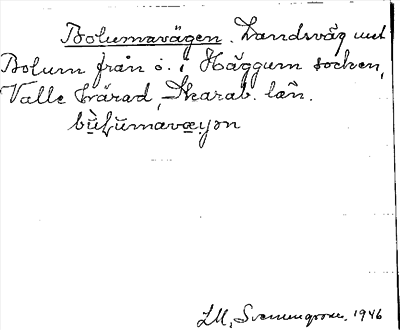 Bolumavägen. Landsväg mot
Bolum från ö. i Häggum socken,
Valle härad, Skarab. län.
LM, Svenungsson, 1946